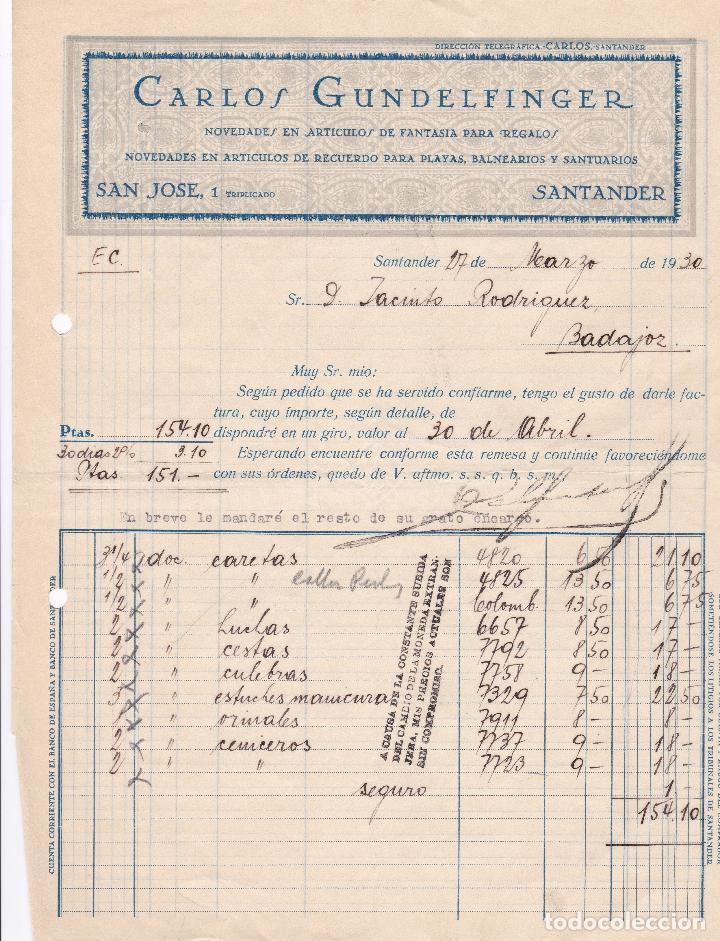 DIRECCIÓN TELEGRÁFICA-CARLOS-SANTANDER
CARLOS GUNDELFINGER
NOVEDADES EN ARTICULOS DE FANTASIA PARA REGALOS
NOVEDADES EN ARTICULOS DE RECUERDO PARA PLAYAS, BALNEARIOS Y SANTUARIOS
SAN JOSE, 1 TRIPLICADO SANTANDER
EC. Santander 27 de Marzo de 1930
Sr. D. Jacinto Rodriguez,
Badajoz.
Muy Sr. mio:
Según pedido que se ha servido confiarme, tengo el gusto de darle fac-
tura, cuyo importe, según detalle, de
Ptas. 154.10 dispondré en un giro, valor al 30 de Abril.
30 dias 2% 3.10 Esperando encuentre conforme esta remesa y continúe favoreciéndome
Ptas 151.- con sus órdenes, quedo de V. aftmo. s. s. q. b. s. m.
En breve le mandaré el resto de su grato encargo.
3 1/4 doc. caretas 4820 21.10
1/2 " " 4825 13.50 6.75
1/2 " " Colomb. 13.50 6.75
2 " huchas 6657 8.50 17-
2 " cestas 7792 8.50 17-
2 " culebras 7758 9- 18-
3 " estuches manicura 7329 7.50 22.50
1 " 7911 8- 8-
2 " ceniceros 7737 9- 18-
2 " " 7723 9- 18-
seguro 1-
154.10
A CAUSA DE LA CONSTANTE SUBIDA
DEL CAMBIO DE LA MONEDA EXTRAN-
JERA, MIS PRECIOS ACTUALES SON
SIN COMPROMISO.
CUENTA CORRIENTE CON EL BANCO DE ESPAÑA Y BANCO DE SANTANDER
SOMETIÉNDOSE LOS LITIGIOS A LOS TRIBUNALES DE SANTANDER
todocoleccion.net